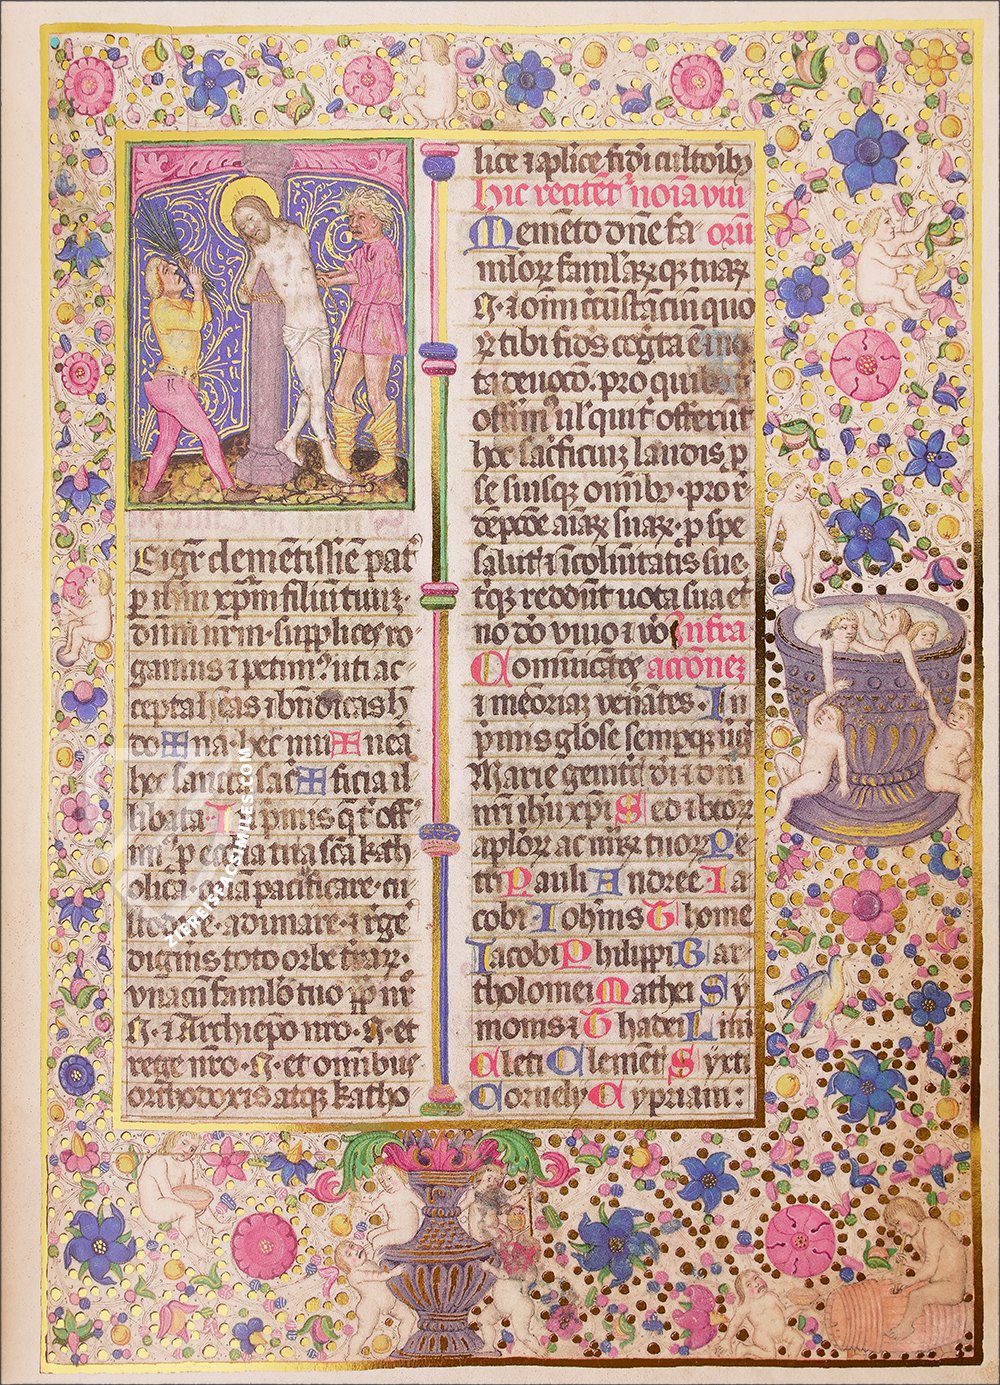 Eigr clementissie pat
p ihm xpm filiu tuuz.
dnm nrm supplices ro
gamus ⁊ petim9 uti ac
cepta heas ⁊ bndicas h
do✠na hec mu✠nea
hec sancta sac✠ficia il
libata In pmis q t off
im9 p ecclia tua sca kath
olica qua pacificare cu
stodire adunare ⁊ rege
digneris toto orbe trar
vnacu famlo tuo pp nr
N. ⁊ Archiepo nro N. et
rege nro N. et omibus
orthodoxis atqz katho
lice ⁊ aplice fidi cultoribz
hic recitet noia viui
orum
Memeto dne fa
mlorz famlarz qz tuarz
N. ⁊ oim circustacin quo
rz tibi fides cogta e
ta deuoco. pro quibus
offerim9 ul qui t offerut
hoc sacficiuz laudis p
se suisqz omibz pro r
depcoe aiarz suarz p spe
salut ⁊ icolumitatis sue
t qz reddut uota sua et
no do viuo ⁊ vo Infra
Comuicates acconez
⁊ meoriaz venates In
pmis glose sempqz ug
Marie genitc di ⁊ dni
nri ihu xpi Sed ⁊ beorz
aplorz ac mrz tuorz Pe
tri Pauli Andree Ia
cobi Iohnis Thome
Iacobi Philippi Bar
tholomei Mathei Sy
monis ⁊ Thadei Lini
Cleti Clemeti Syxti
Cornely Cypriani :
ZIEREISFACSIMILES.COM